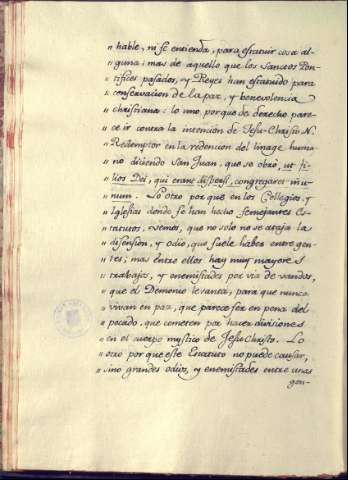 " hable, ni se entienda, para estatuir cosa al-
" guna; mas de aquello que los Sanctos Pon-
" tifices pasados, y Reyes han estatuido para
" conservacion de la paz, y benevolencia
" christiana: lo uno porque de derecho pare-
" ce ir contra la intencion de Jesu-Christo N.
" Redemptor en la redencion del linage huma-
" no diciendo San Juan, que se obró, ut fi-
" lios Dei, qui erant dispersi, congregaret in u-
" num. Lo otro porque en los Collegios, y
" Iglesias donde se han hecho semejantes Es-
" tatutos, vemos, que no solo no se ataja la
" disension, y odio, que suele haber entre gen-
" tes; mas entre ellos hay muy mayores
" trabajos, y enemistades por via de vandos,
" que el Demonio levanta, para que nunca
" vivan en paz, que parece ser en pena del
" pecado, que cometen por hacer divisiones
" en el cuerpo mystico de Jesu Christo. Lo
" otro por que este Estatuto no puede causar,
" sino grandes odios, y enemistades entre unas
gen-